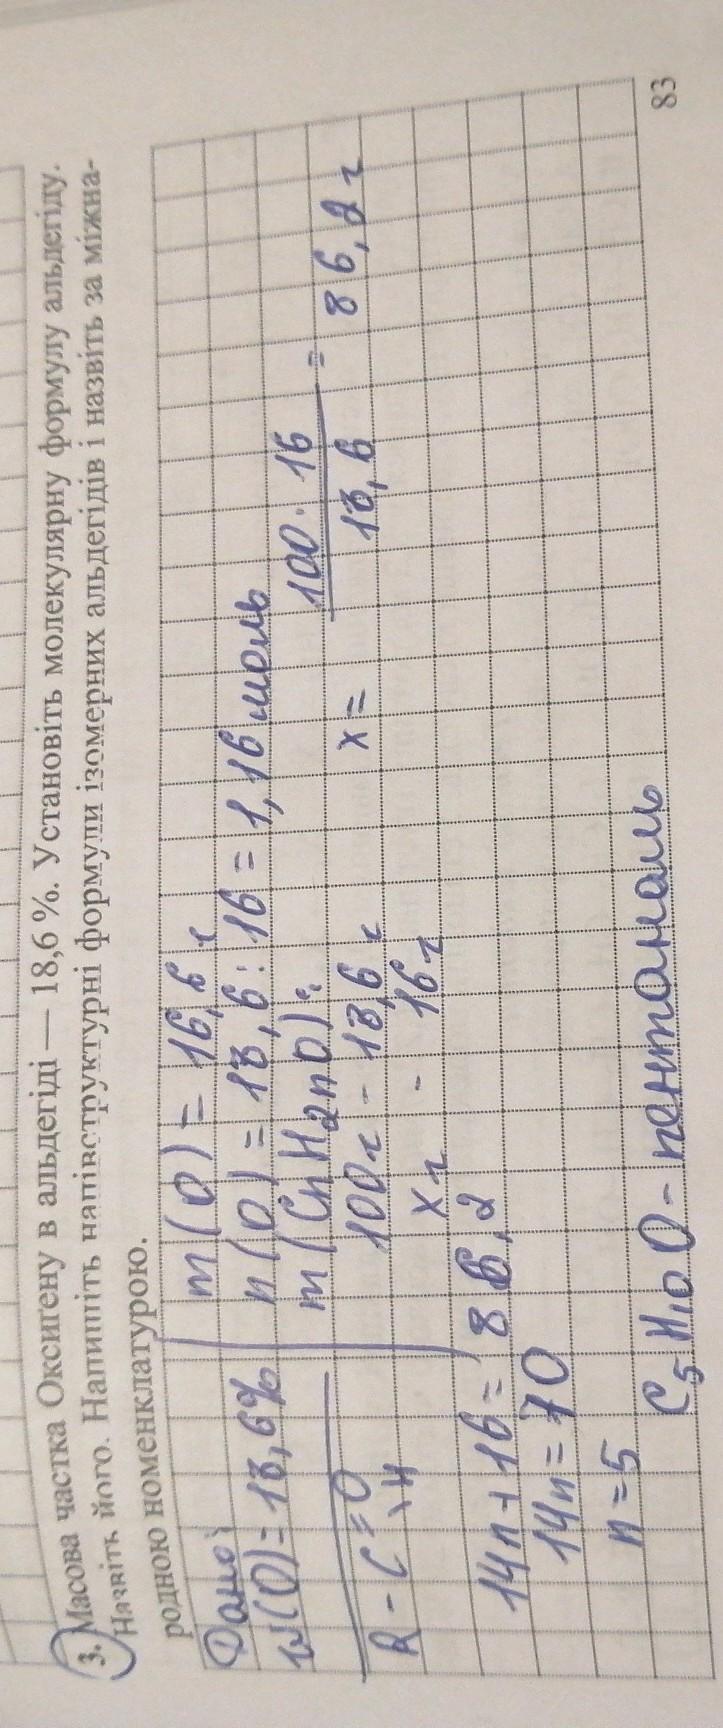 3. Масова частка Оксигену в альдегіді — 18,6 %. Установіть молекулярну формулу альдегіду.
Назвіть його. Напишіть напівструктурні формули ізомерних альдегідів і назвіть за міжна-
родною номенклатурою.
Дано:
w(O) = 18,6%
R - C = O
\H
m(O) = 16,6 г
n(O) = 18,6 : 16 = 1,16 моль
m(CnH2nO):
100г - 18,6 г
x г - 16 г
x = 100 · 16 / 18,6 = 86,2 г
14n + 16 = 86,2
14n = 70
n = 5
C5H10O - пентаналь
83